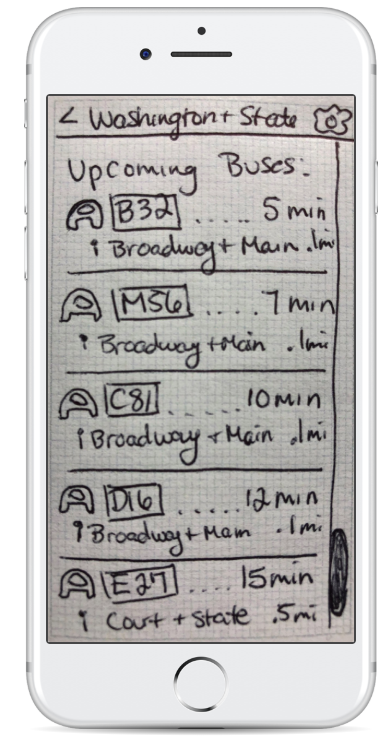 < Washington + State
Upcoming Buses:
B32 ..... 5 min
Broadway + Main .1mi
M56 .... 7 min
Broadway + Main .1mi
C81 ..... 10 min
Broadway + Main .1mi
D16 ..... 12 min
Broadway + Main .1mi
E27 .... 15 min
Court + State .5mi